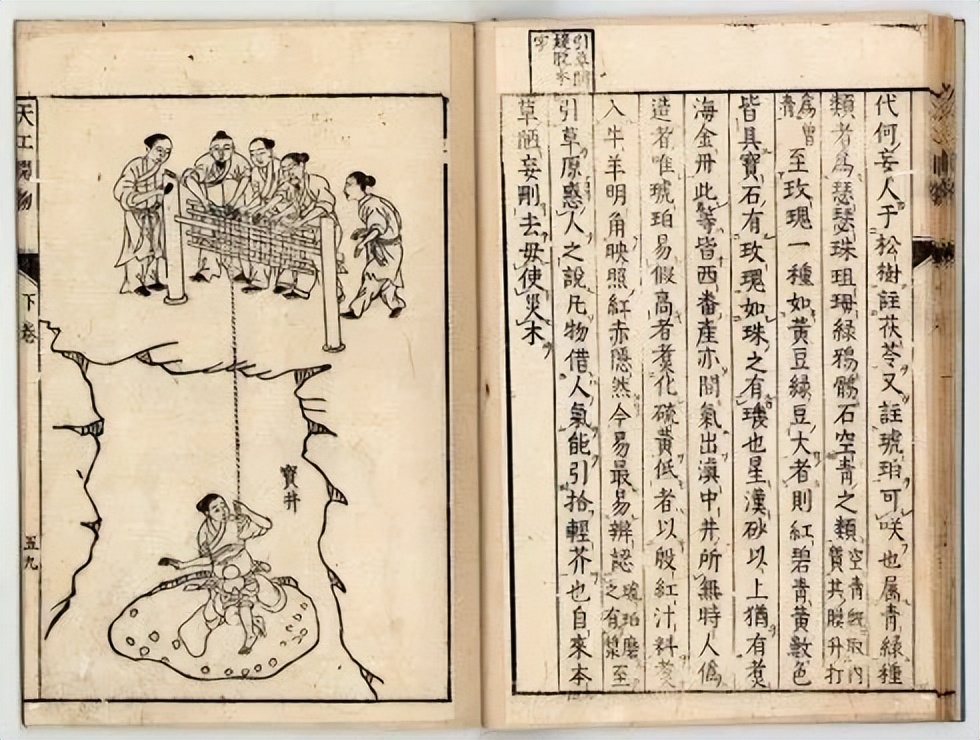 引草間
疑脱本
字
代何妄人于松樹註茯苓又註琥珀可咲也属青緑種
類者為瑟瑟珠珇珻緑鴉鶻石空青之類空青既取内
質其膜升打
為曽
青至玫瑰一種如黄豆緑豆大者則紅碧青黄數色
皆具寳石有玫瑰如珠之有璣也星漢砂以上猶有煑
海金丹此等皆西番産亦間氣出滇中井所無時人偽
造者唯琥珀易假高者煑化硫黄低者以殷紅汁料煑
入牛羊明角映照紅赤隱然今易最易辨認琥珀磨
之有漿至
引草原惑人之説凡物借人氣能引拾輕芥也自來本
草陋妄刪去毋使災木
寳井
天工開物
下巻
五九